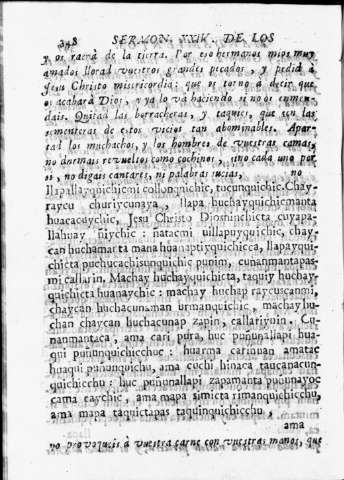 348 SERMON. XXIV. DE LOS
y os raerà de la tierra. Por eso hermanos mios muy
amados llorad vuestros grandes pecados, y pedid à
Jesu Christo misericordia: que os torno à decir que
os acabarà Dios, y ya lo và haciendo si no os enmen-
dais. Quitad las borracheras, y taquies, que son las
sementeras de estos vicios tan abominables. Apar-
tad los muchachos, y los hombres de vuestras camas,
no durmais rebueltos como cochinos, sino cada uno por
sì, no digais cantares, ni palabras sucias, no
llapallayquichicmi collonquichic, tucunquichic. Chay-
raycu churiycunaya, llapa huchayquichicmanta
huacacuychic, Jesu Christo Diosninchicta cuyapa-
llahuay ñiychic: natacmi uillapuyquichic, chay-
can huchamarta mana huanaptiyquichicca, llapayqui-
chicta puchucachisunquichic punim, cunanmantapas-
mi callarin. Machay huchayquichicta, taquiy huchay-
quichicta huanaychic: machay huchap raycuscanmi,
chaycan huchacunaman urmanquichic, machay hu-
chan chaycan huchacunap zapin, callariynin. Cu-
nanmantaca, ama cari pura, huc puñunallapi hua-
qui puñunquichicchu: huarma carinuan amatac
huaqui puñunquichu, ama cuchi hinaca taucanacun-
quichicchu: huc puñunallapi zapamanta puñunayoc
cama caychic, ama mapa simicta rimanquichicchu,
ama mapa taquictapas taquinquichicchu,
ama
no provoqueis à vuestra carne con vuestras manos, que